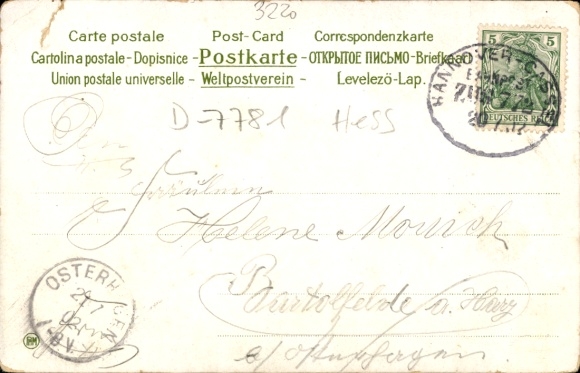 3220
Carte postale Post-Card Correspondenzkarte
Cartolina postale - Dopisnice - Postkarte - ОТКРЫТОЕ ПИСЬМО - Briefkaart
Union postale universelle - Weltpostverein - Levelezö-Lap.
5 5
HANNOVER-CASSEL
ZUG
DEUTSCHES REICH
D-7781 Hess
Fräulein
Helene Monich
Bartolfelde a. Harz
a/ Osterhagen.
OSTERHAGEN